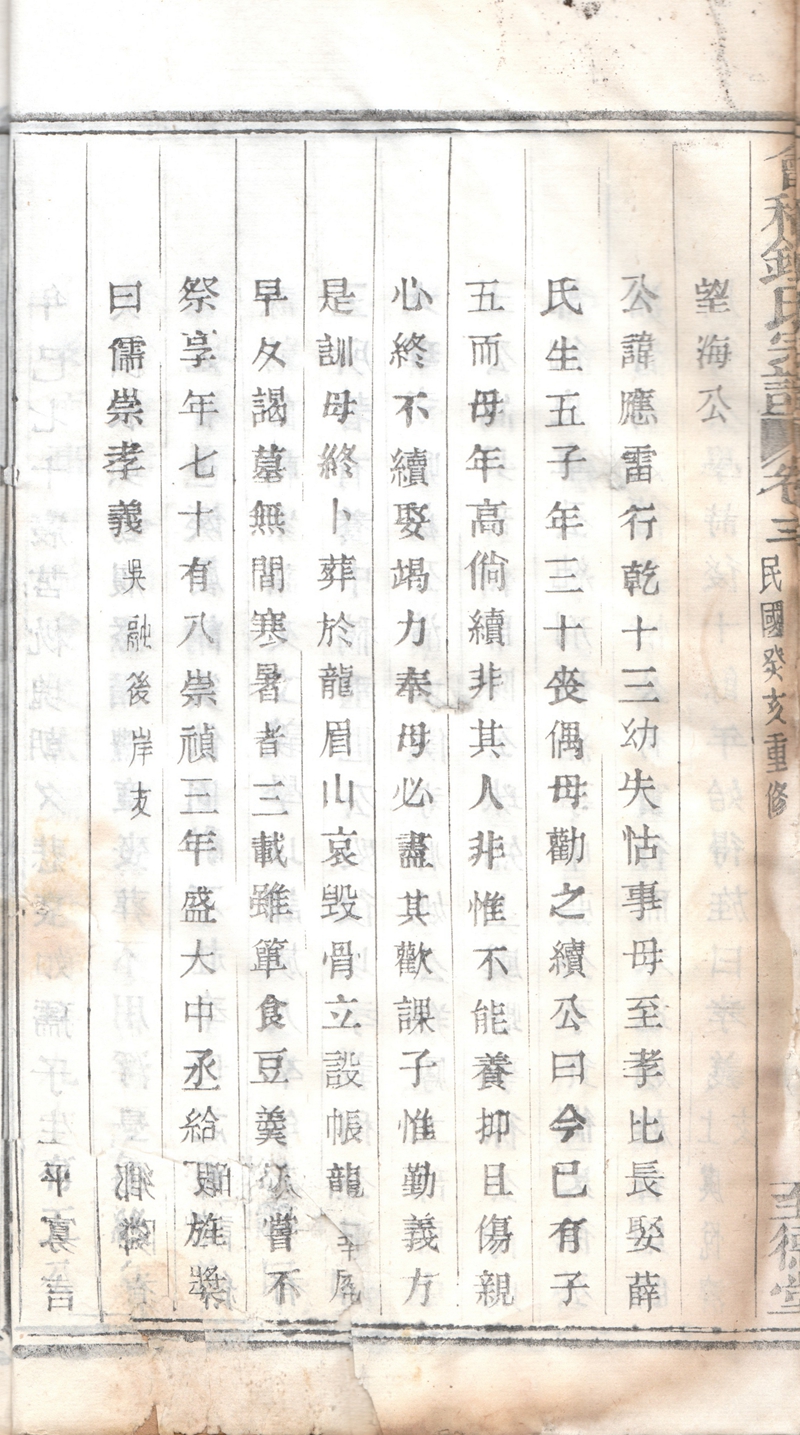 會稽鍾氏宗譜 卷三 民國癸亥重修 至德堂
望海公
公諱應雷行乾十三幼失怙事母至孝比長娶薛
氏生五子年三十喪偶母勸之續公曰今已有子
五而母年高倘續非其人非惟不能養抑且傷親
心終不續娶竭力奉母必盡其歡課子惟勤義方
是訓母終卜葬於龍眉山哀毀骨立設帳龍
早夕謁墓無間寒暑者三載雖簞食豆羹不嘗不
祭享年七十有八崇禎三年盛大中丞給旌獎
曰儒崇孝義吳融後岸支
平寡言